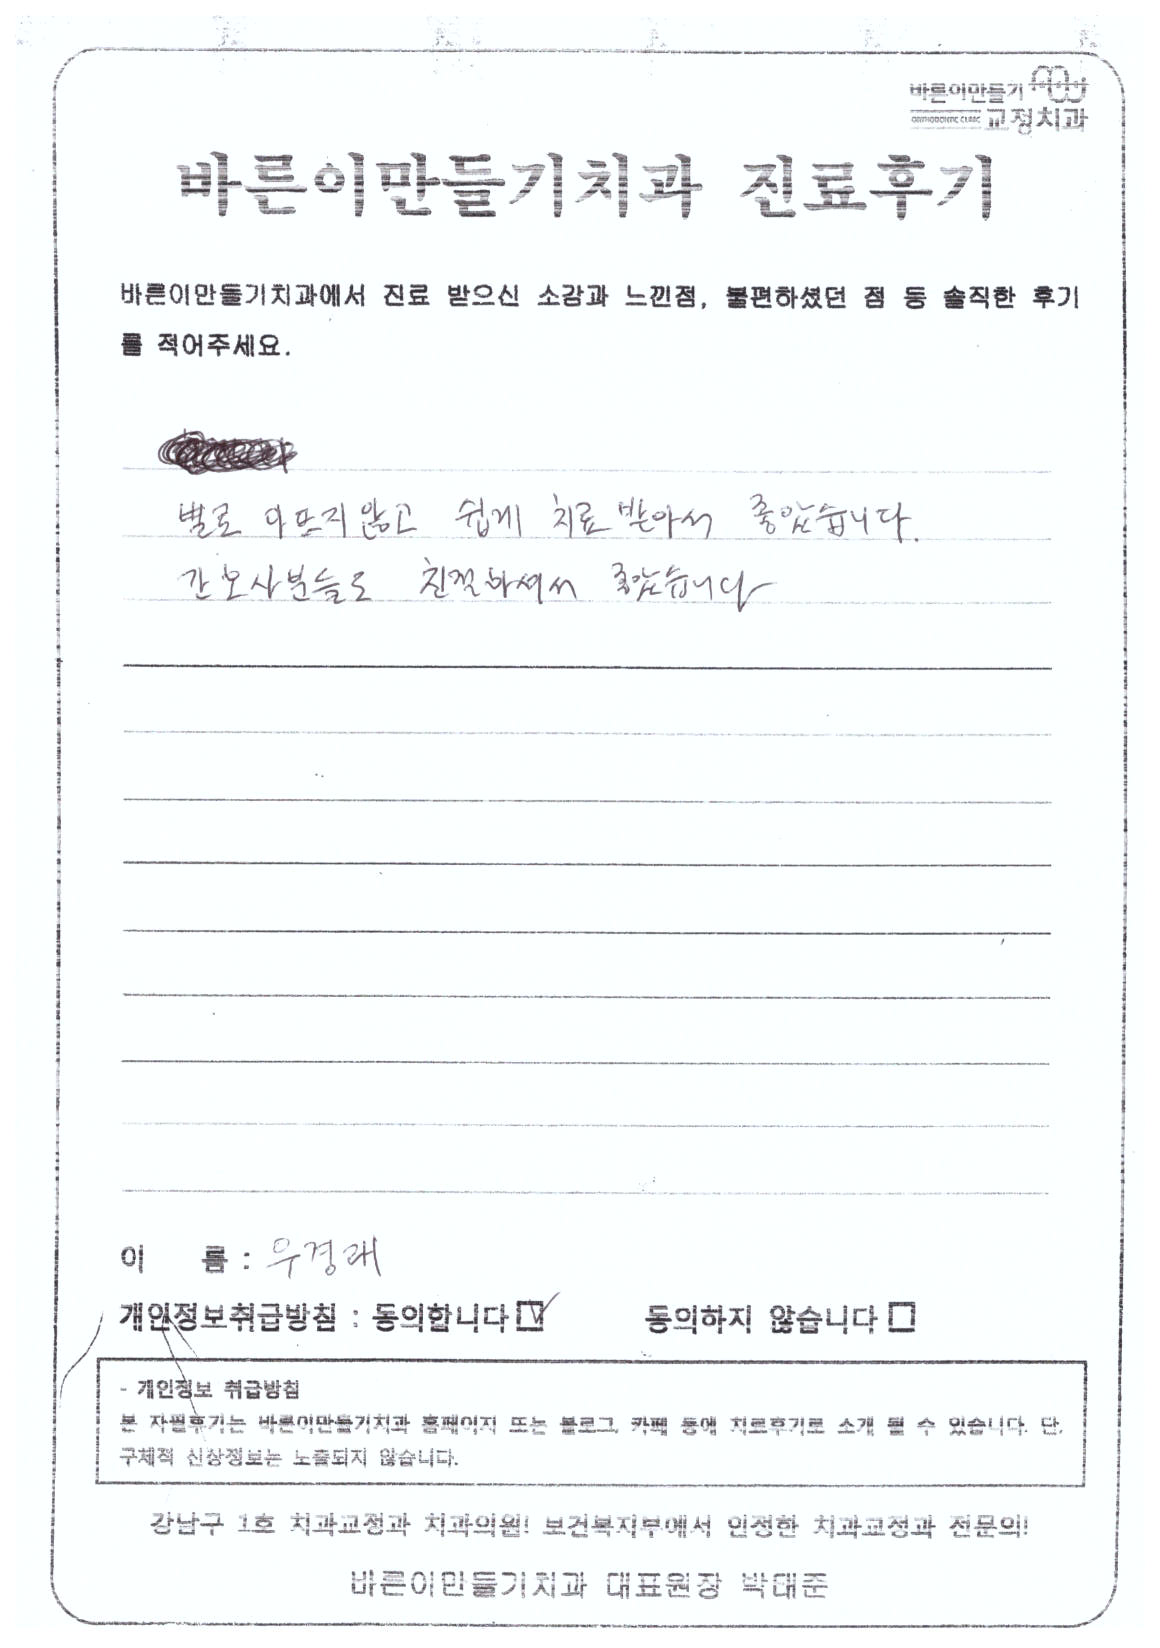 바른이만들기
ORTHODONTIC CLINIC 교정치과
바른이만들기치과 진료후기
바른이만들기치과에서 진료 받으신 소감과 느낀점, 불편하셨던 점 등 솔직한 후기
를 적어주세요.
별로 아프지 않고 쉽게 치료 받아서 좋았습니다.
간호사분들도 친절하셔서 좋았습니다
이 름 : 우경래
개인정보취급방침 : 동의합니다 동의하지 않습니다
- 개인정보 취급방침
본 자필후기는 바른이만들기치과 홈페이지 또는 블로그, 카페 등에 치료후기로 소개 될 수 있습니다. 단,
구체적 신상정보는 노출되지 않습니다.
강남구 1호 치과교정과 치과의원! 보건복지부에서 인정한 치과교정과 전문의!
바른이만들기치과 대표원장 박대준